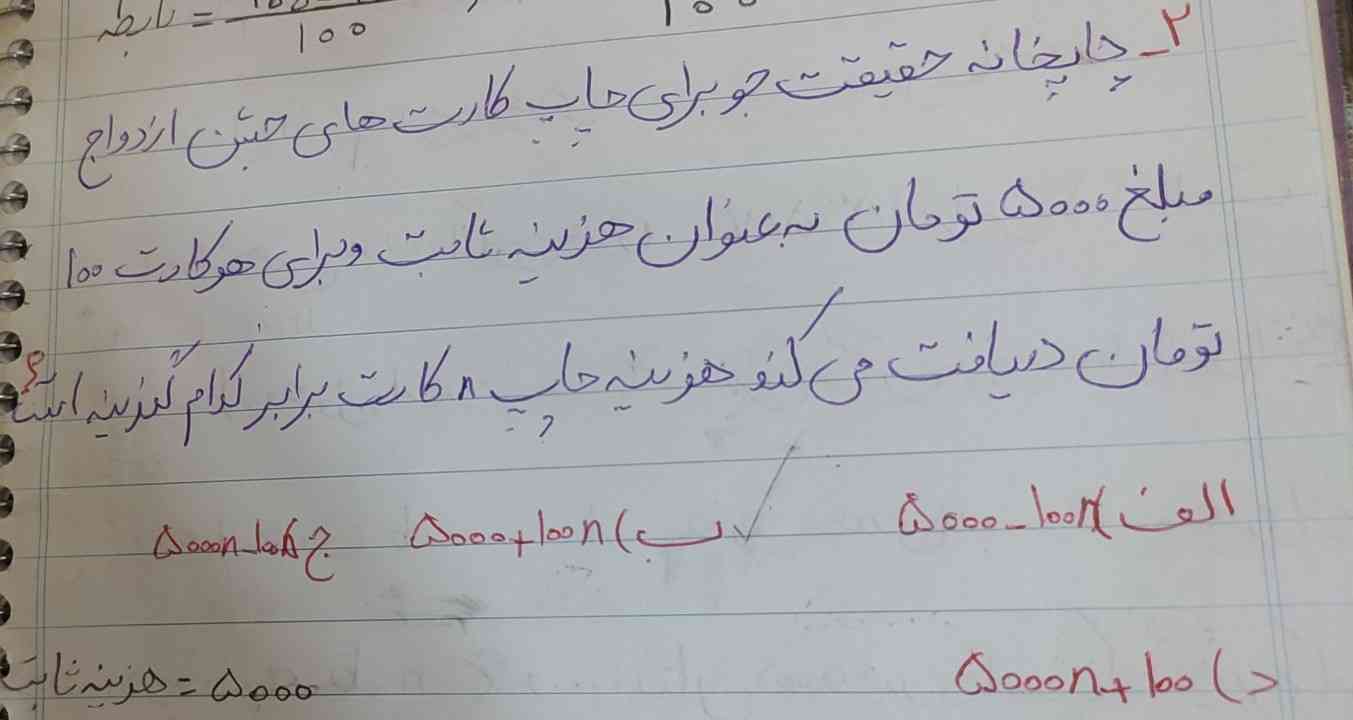 رابطه = ۱۰۰
۱۰۰
۲_ چاپخانه حقیقت جو برای چاپ کارت های جشن ازدواج
مبلغ ۵۰۰۰ تومان به عنوان هزینه ثابت و برای هر کارت ۱۰۰
تومان دریافت می کند هزینه چاپ n کارت برابر کدام گزینه است؟
الف) ۵۰۰۰_۱۰۰n ب) ۵۰۰۰+۱۰۰n ج) ۵۰۰۰n_۱۰۰
د) ۵۰۰۰n+۱۰۰ ۵۰۰۰ = هزینه ثابت